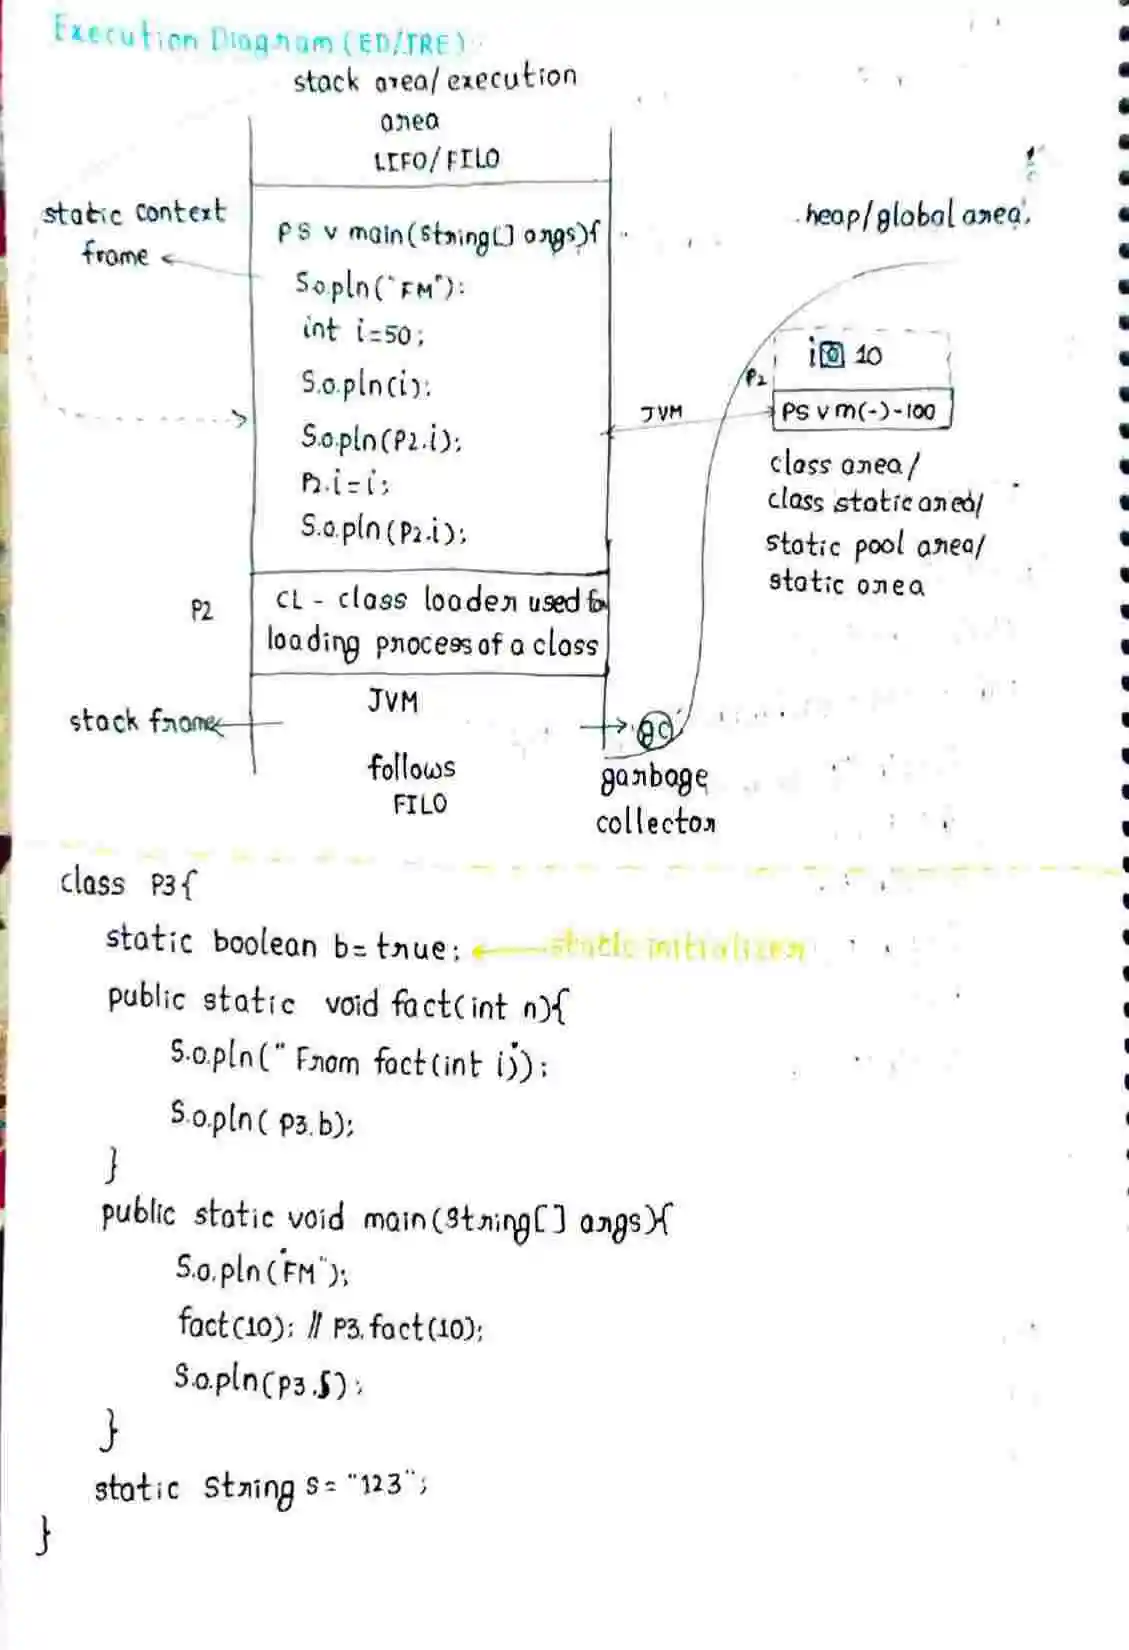 Execution Diagram (ED/JRE)
stack area/execution
area
LIFO/FILO
static context
frame
heap/global area.
P S v main(String[] args){
S.o.pln("FM");
int i=50;
S.o.pln(i);
S.o.pln(P2.i);
P2.i=i;
S.o.pln(P2.i);
JVM
P2
i 10
PS v m(-)-100
class area/
class static area/
static pool area/
static area
P2
CL - class loader used for
loading process of a class
stack frame
JVM
follows
FILO
gc
garbage
collector
class P3{
static boolean b=true; static initializer
public static void fact(int n){
S.o.pln("From fact(int i)");
S.o.pln(P3.b);
}
public static void main(String[] args){
S.o.pln("FM");
fact(10); // P3.fact(10);
S.o.pln(P3.s);
}
static String s="123";
}